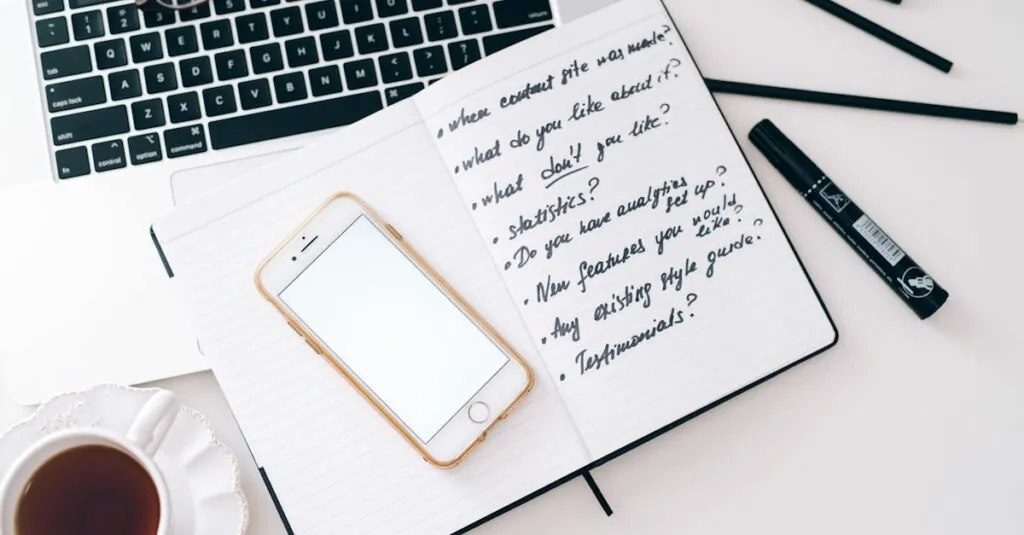 tab Q W E R T Y U I O P
caps lock A S D F G H J K L
shift Z X C V B N M < > ?
fn control option command
• when content site was made?
• what do you like about it?
• what don't you like?
• statistics?
• Do you have analytics
set up?
• New features you would
like?
• Any existing style guide?
• Testimonials?